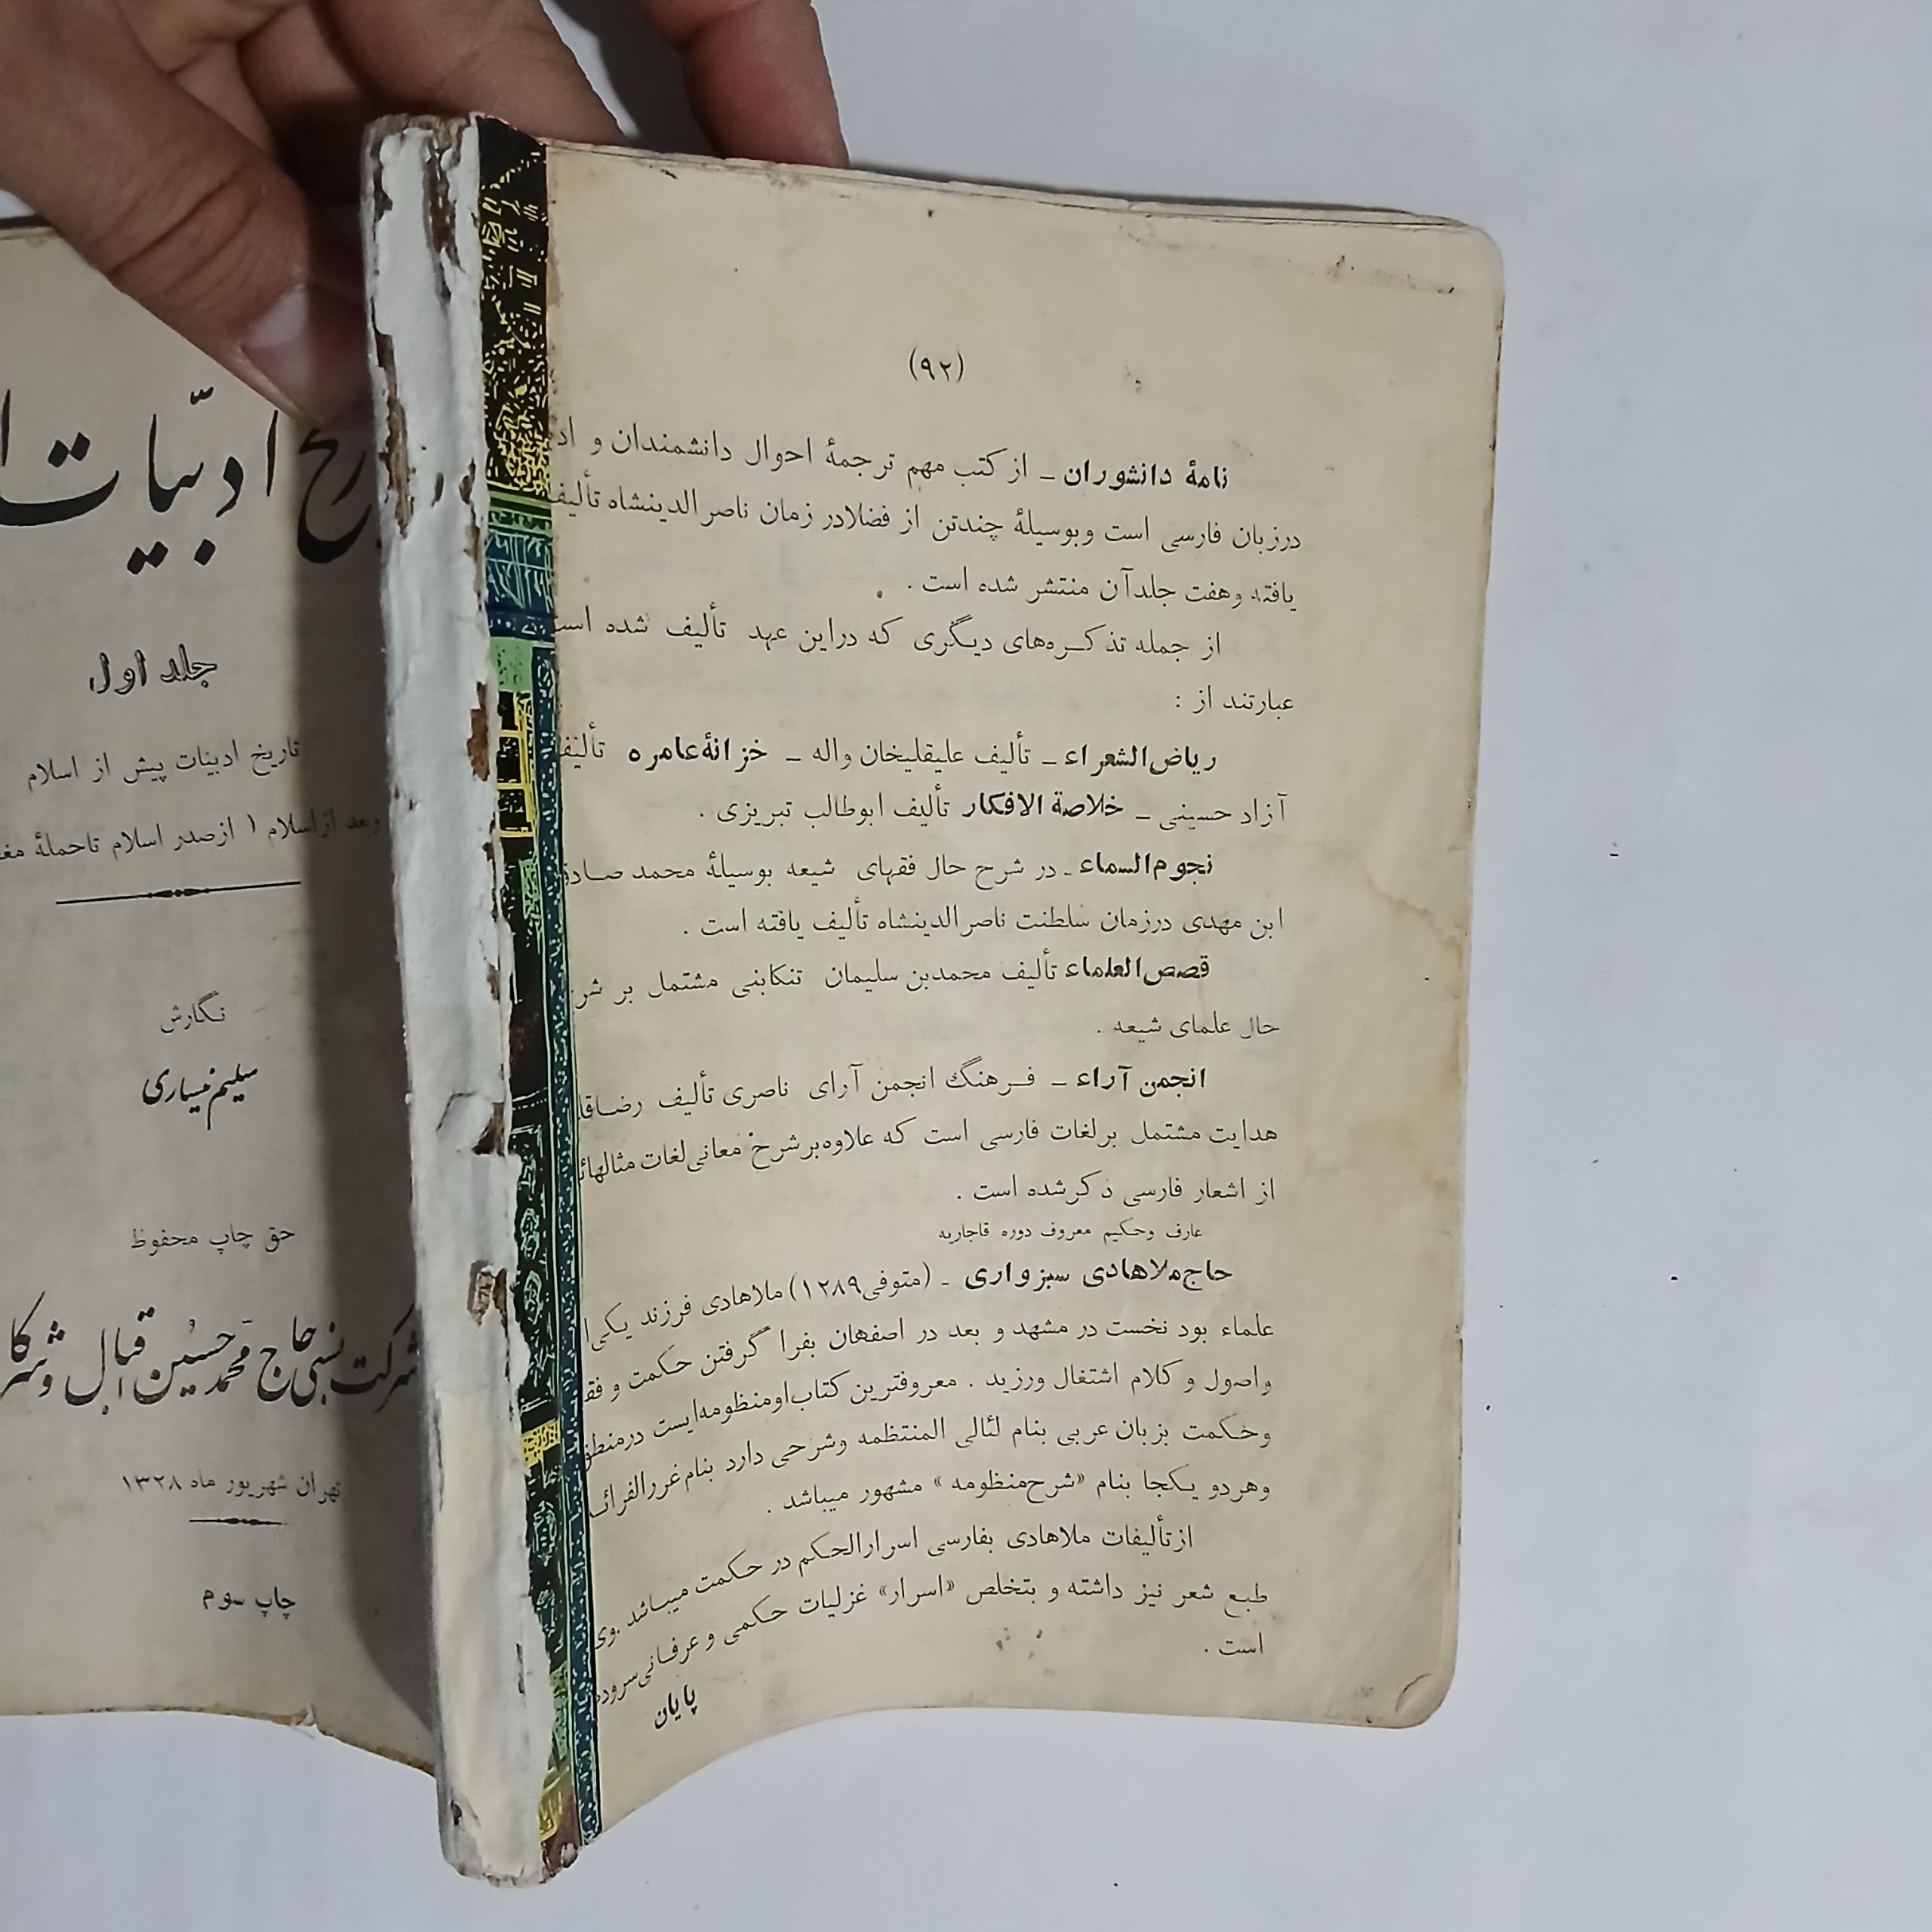 (۹۲)
نامهٔ دانشوران ـ از کتب مهم ترجمهٔ احوال دانشمندان و
درزبان فارسی است و بوسیلهٔ چندتن از فضلادر زمان ناصرالدینشاه تألیف
یافته وهفت جلدآن منتشر شده است .
از جمله تذکره‌های دیگری که دراین عهد تألیف شده است
عبارتند از :
ریاض‌الشعراء ـ تألیف علیقلیخان واله ـ خزانهٔ عامره تألیف
آزاد حسینی ـ خلاصة الافکار تألیف ابوطالب تبریزی .
نجوم‌السماء ـ در شرح حال فقهای شیعه بوسیلهٔ محمد صادق
ابن مهدی درزمان سلطنت ناصرالدینشاه تألیف یافته است .
قصص‌العلماء تألیف محمدبن سلیمان تنکابنی مشتمل بر
حال علمای شیعه .
انجمن آراء ـ فرهنگ انجمن آرای ناصری تألیف
هدایت مشتمل برلغات فارسی است که علاوه‌برشرح معانی‌لغات
از اشعار فارسی ذکرشده است .
عارف وحکیم معروف دوره قاجاریه
حاج‌ملاهادی سبزواری ـ (متوفی۱۲۸۹) ملاهادی فرزند
علماء بود نخست در مشهد و بعد در اصفهان بفرا گرفتن حکمت و
واصول و کلام اشتغال ورزید . معروفترین کتاب‌اومنظومه‌ایست
وحکمت بزبان عربی بنام لئالی المنتظمه وشرحی دارد بنام
وهردو یکجا بنام «شرح‌منظومه» مشهور میباشد .
ازتألیفات ملاهادی بفارسی اسرارالحکم در حکمت میباشد .وی
طبع شعر نیز داشته و بتخلص «اسرار» غزلیات حکمی و عرفانی‌سروده
است .
پایان
ادبیّات
جلد اول
تاریخ ادبیات پیش از اسلام
وبعد ازاسلام ( ازصدر اسلام تاحملهٔ
نگارش
سلیم نیساری
حق چاپ محفوظ
شرکت نسبی حاج محمد حسین اقبال و شرکا
تهران شهریور ماه ۱۳۲۸
چاپ سوم